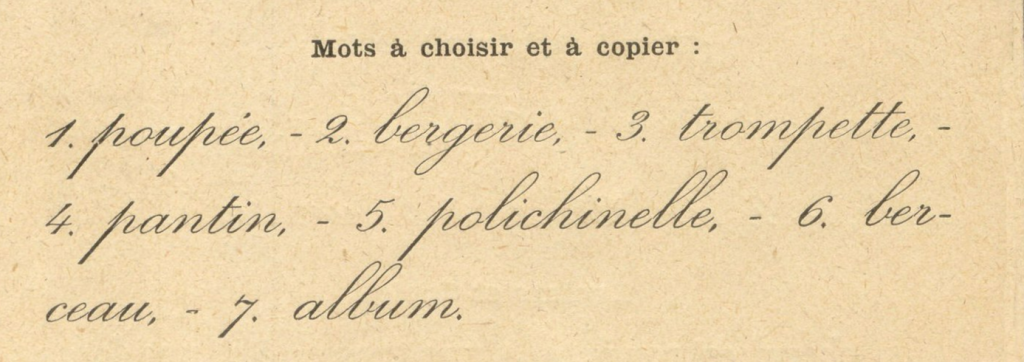 Mots à choisir et à copier :
1. poupée, - 2. bergerie, - 3. trompette, -
4. pantin, - 5. polichinelle, - 6. ber-
ceau, - 7. album.